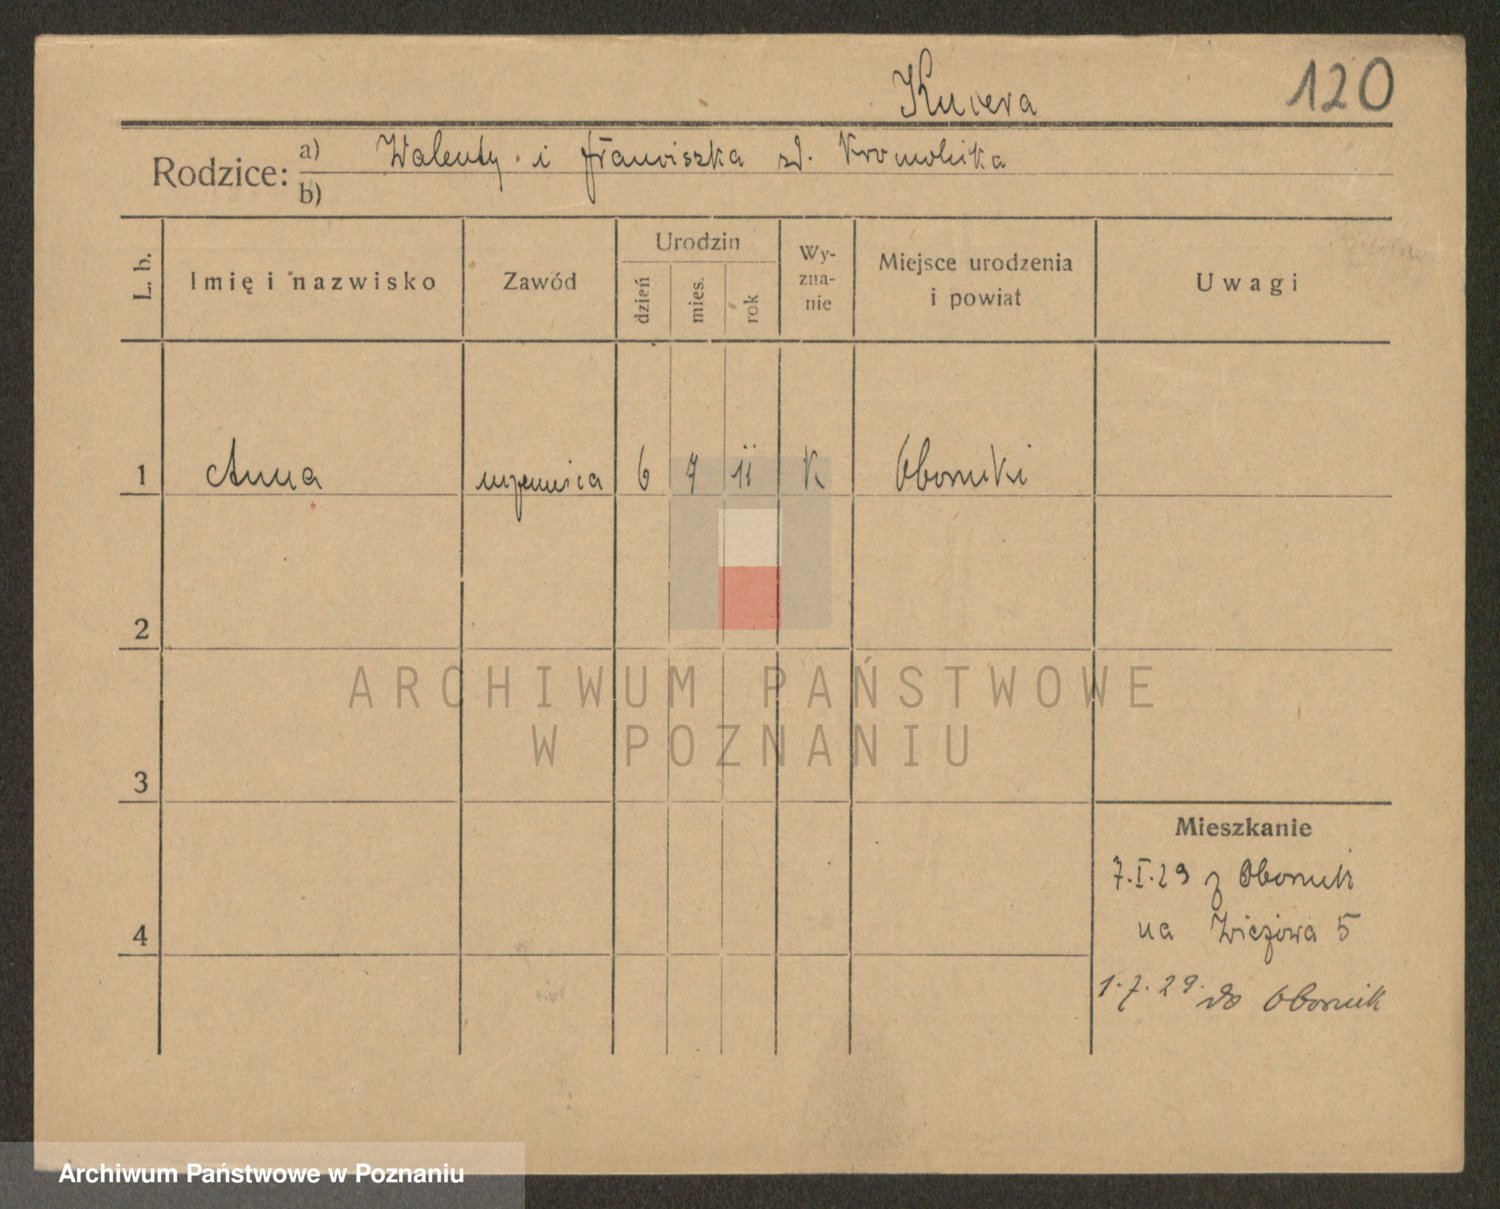 Kucera
120
Rodzice: a) Walenty i Franciszka zd.
b)
L. b. Imię i nazwisko Zawód Urodzin dzień mies. rok Wy-zna-nie Miejsce urodzenia i powiat Uwagi
1 Anna uczennica 6 7 11 K Oborniki
2
3
4
Mieszkanie
7.I.29 z Obornik
na 5
1.7.29. do Obornik
ARCHIWUM PAŃSTWOWE
W POZNANIU
Archiwum Państwowe w Poznaniu